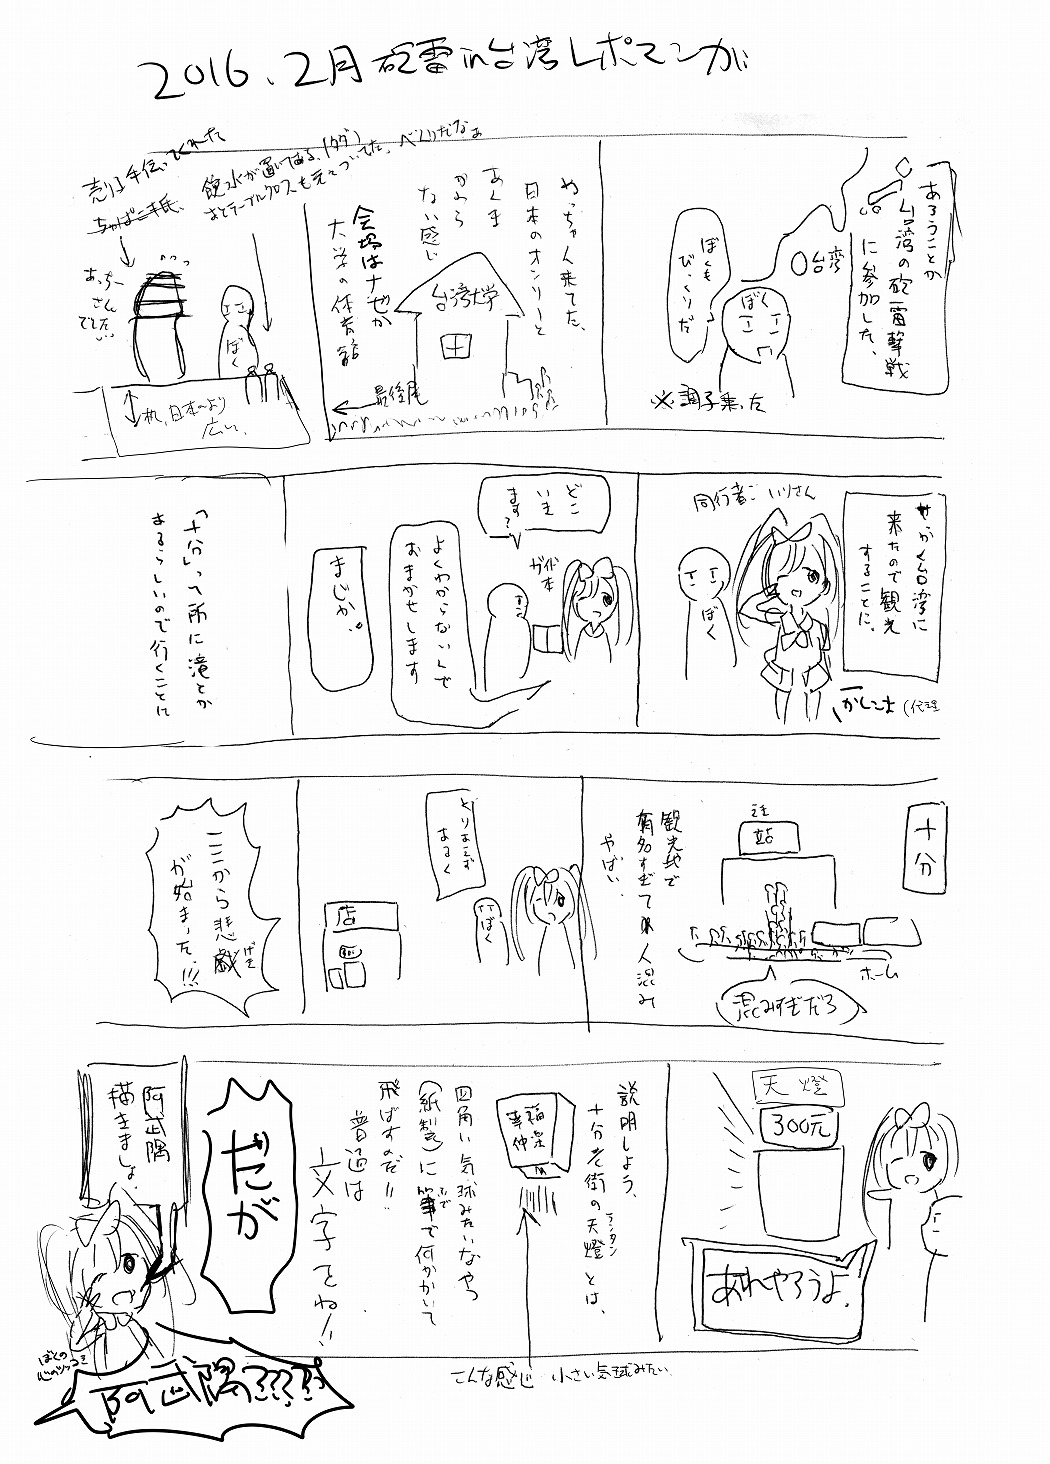 2016、2月 砲雷in台湾レポマンガ
あろうことか
台湾の砲雷撃戦
に参加した、
台湾
ぼくも
びっくりだ
ぼく
※調子乗った
やっちゃん来てた、
日本のオンリーと
あんま
かわら
ない感じ
台湾大学
会場はナゼか
大学の体育館
最後尾
売り子手伝ってくれた
ちゃばニキ氏、
飲み水が置いてある、(タダ)
あとテーブルクロスも元々ついてた、べんりだなぁ
あっちー
さん
でした…
ぼく
机、日本より
広い、
せっかく台湾に
来たので観光
することに、
同行者ごいりさん
ぼく
かしこま(代理
どこ
いき
ます?
ガイド
本
よくわからないんで
おまかせします
まじか。
「十分」って所に滝とか
あるらしいので行くことに
十分
站
ホーム
混みすぎだろ
観光地で
有名すぎて人混み
やばい、
とりあえず
あるく
ぼく
店
ここから悲劇
げき
が始まった、!!!
天燈
300元
あれやろうよ、
説明しよう、
十分老街の天燈とは、
ランタン
四角い気球みたいなやつ
(紙製)に筆で何かかいて
ふで
飛ばすのだ!!
普通は
文字をね!!
こんな感じ 小さい気球みたい
だが
阿武隈
描きましょ、
ぼくの
心のツッコミ
阿武隈????